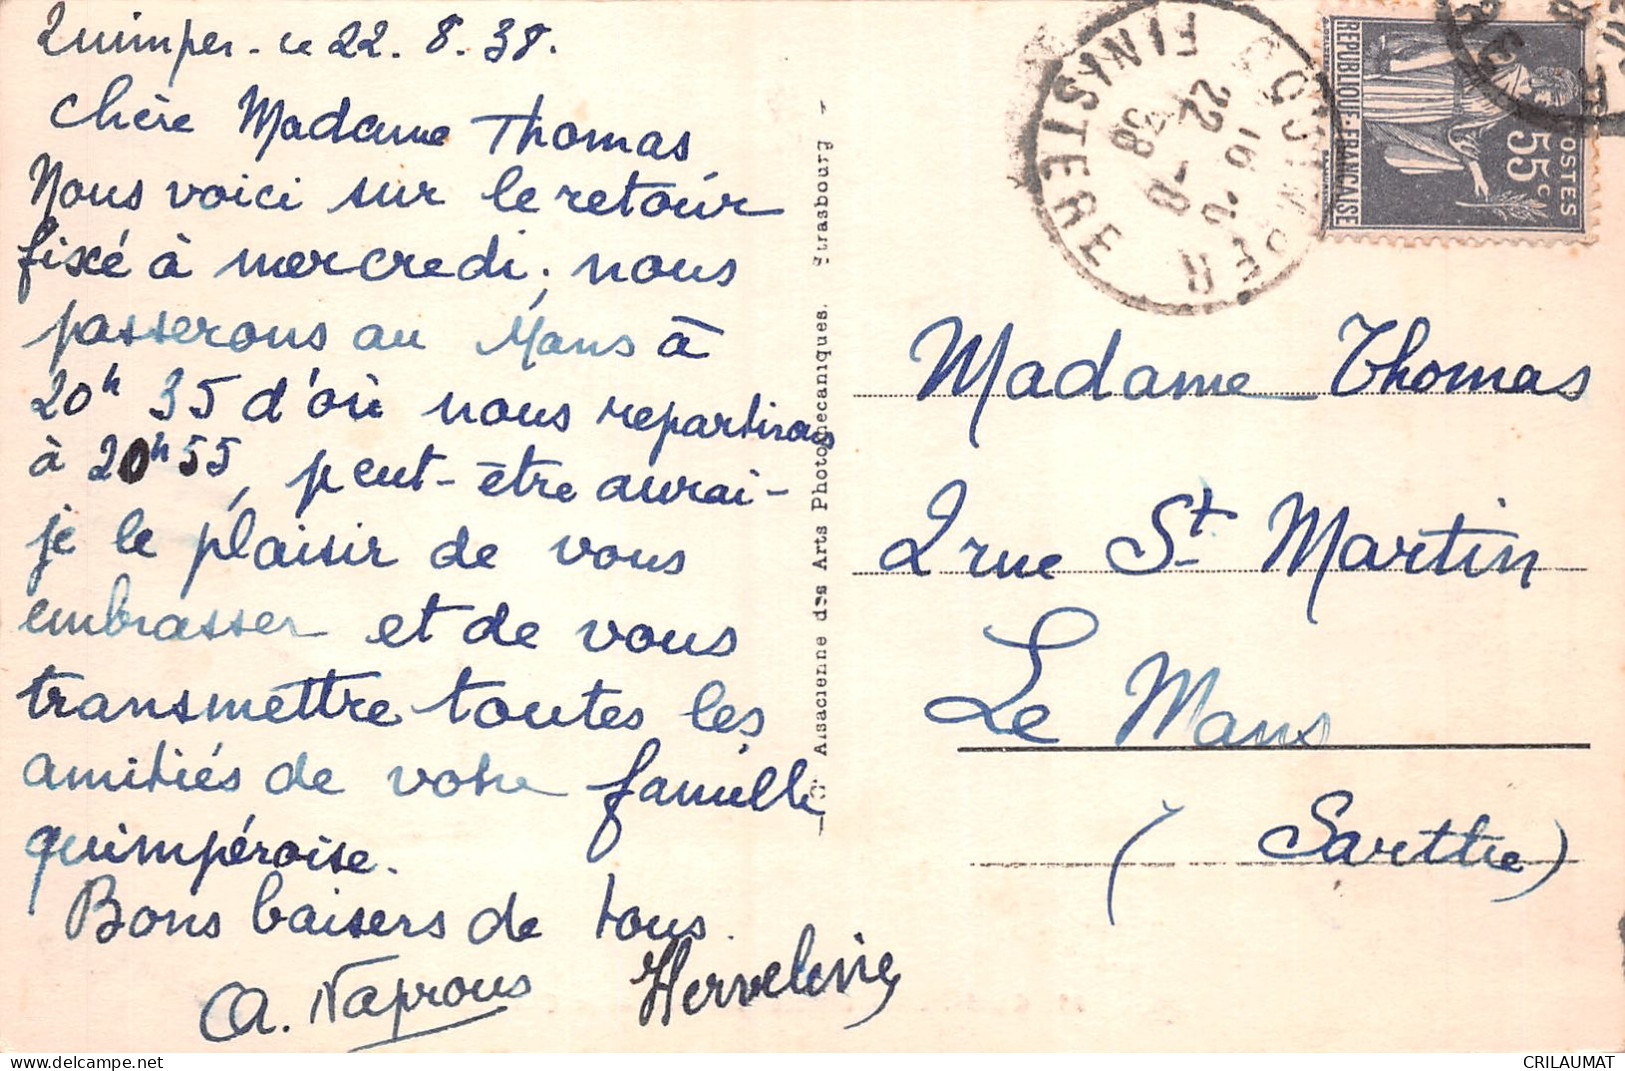 Quimper - le 22. 8. 38.
Chère Madame Thomas
Nous voici sur le retour
fixé à mercredi; nous
passerons au Mans à
20h 35 d'où nous repartirons
à 20h55, peut-être aurai-
je le plaisir de vous
embrasser et de vous
transmettre toutes les
amitiés de votre famille
quimpéroise.
Bons baisers de tous.
A. Naprous
Alsacienne des Arts Photomécaniques. Strasbourg -
QUIMPER
FINISTERE
16 22 -8 38
REPUBLIQUE·FRANÇAISE
55c
POSTES
Madame Thomas
2 rue St Martin
Le Mans
(Sartte)
delcampe.net
CRILAUMAT